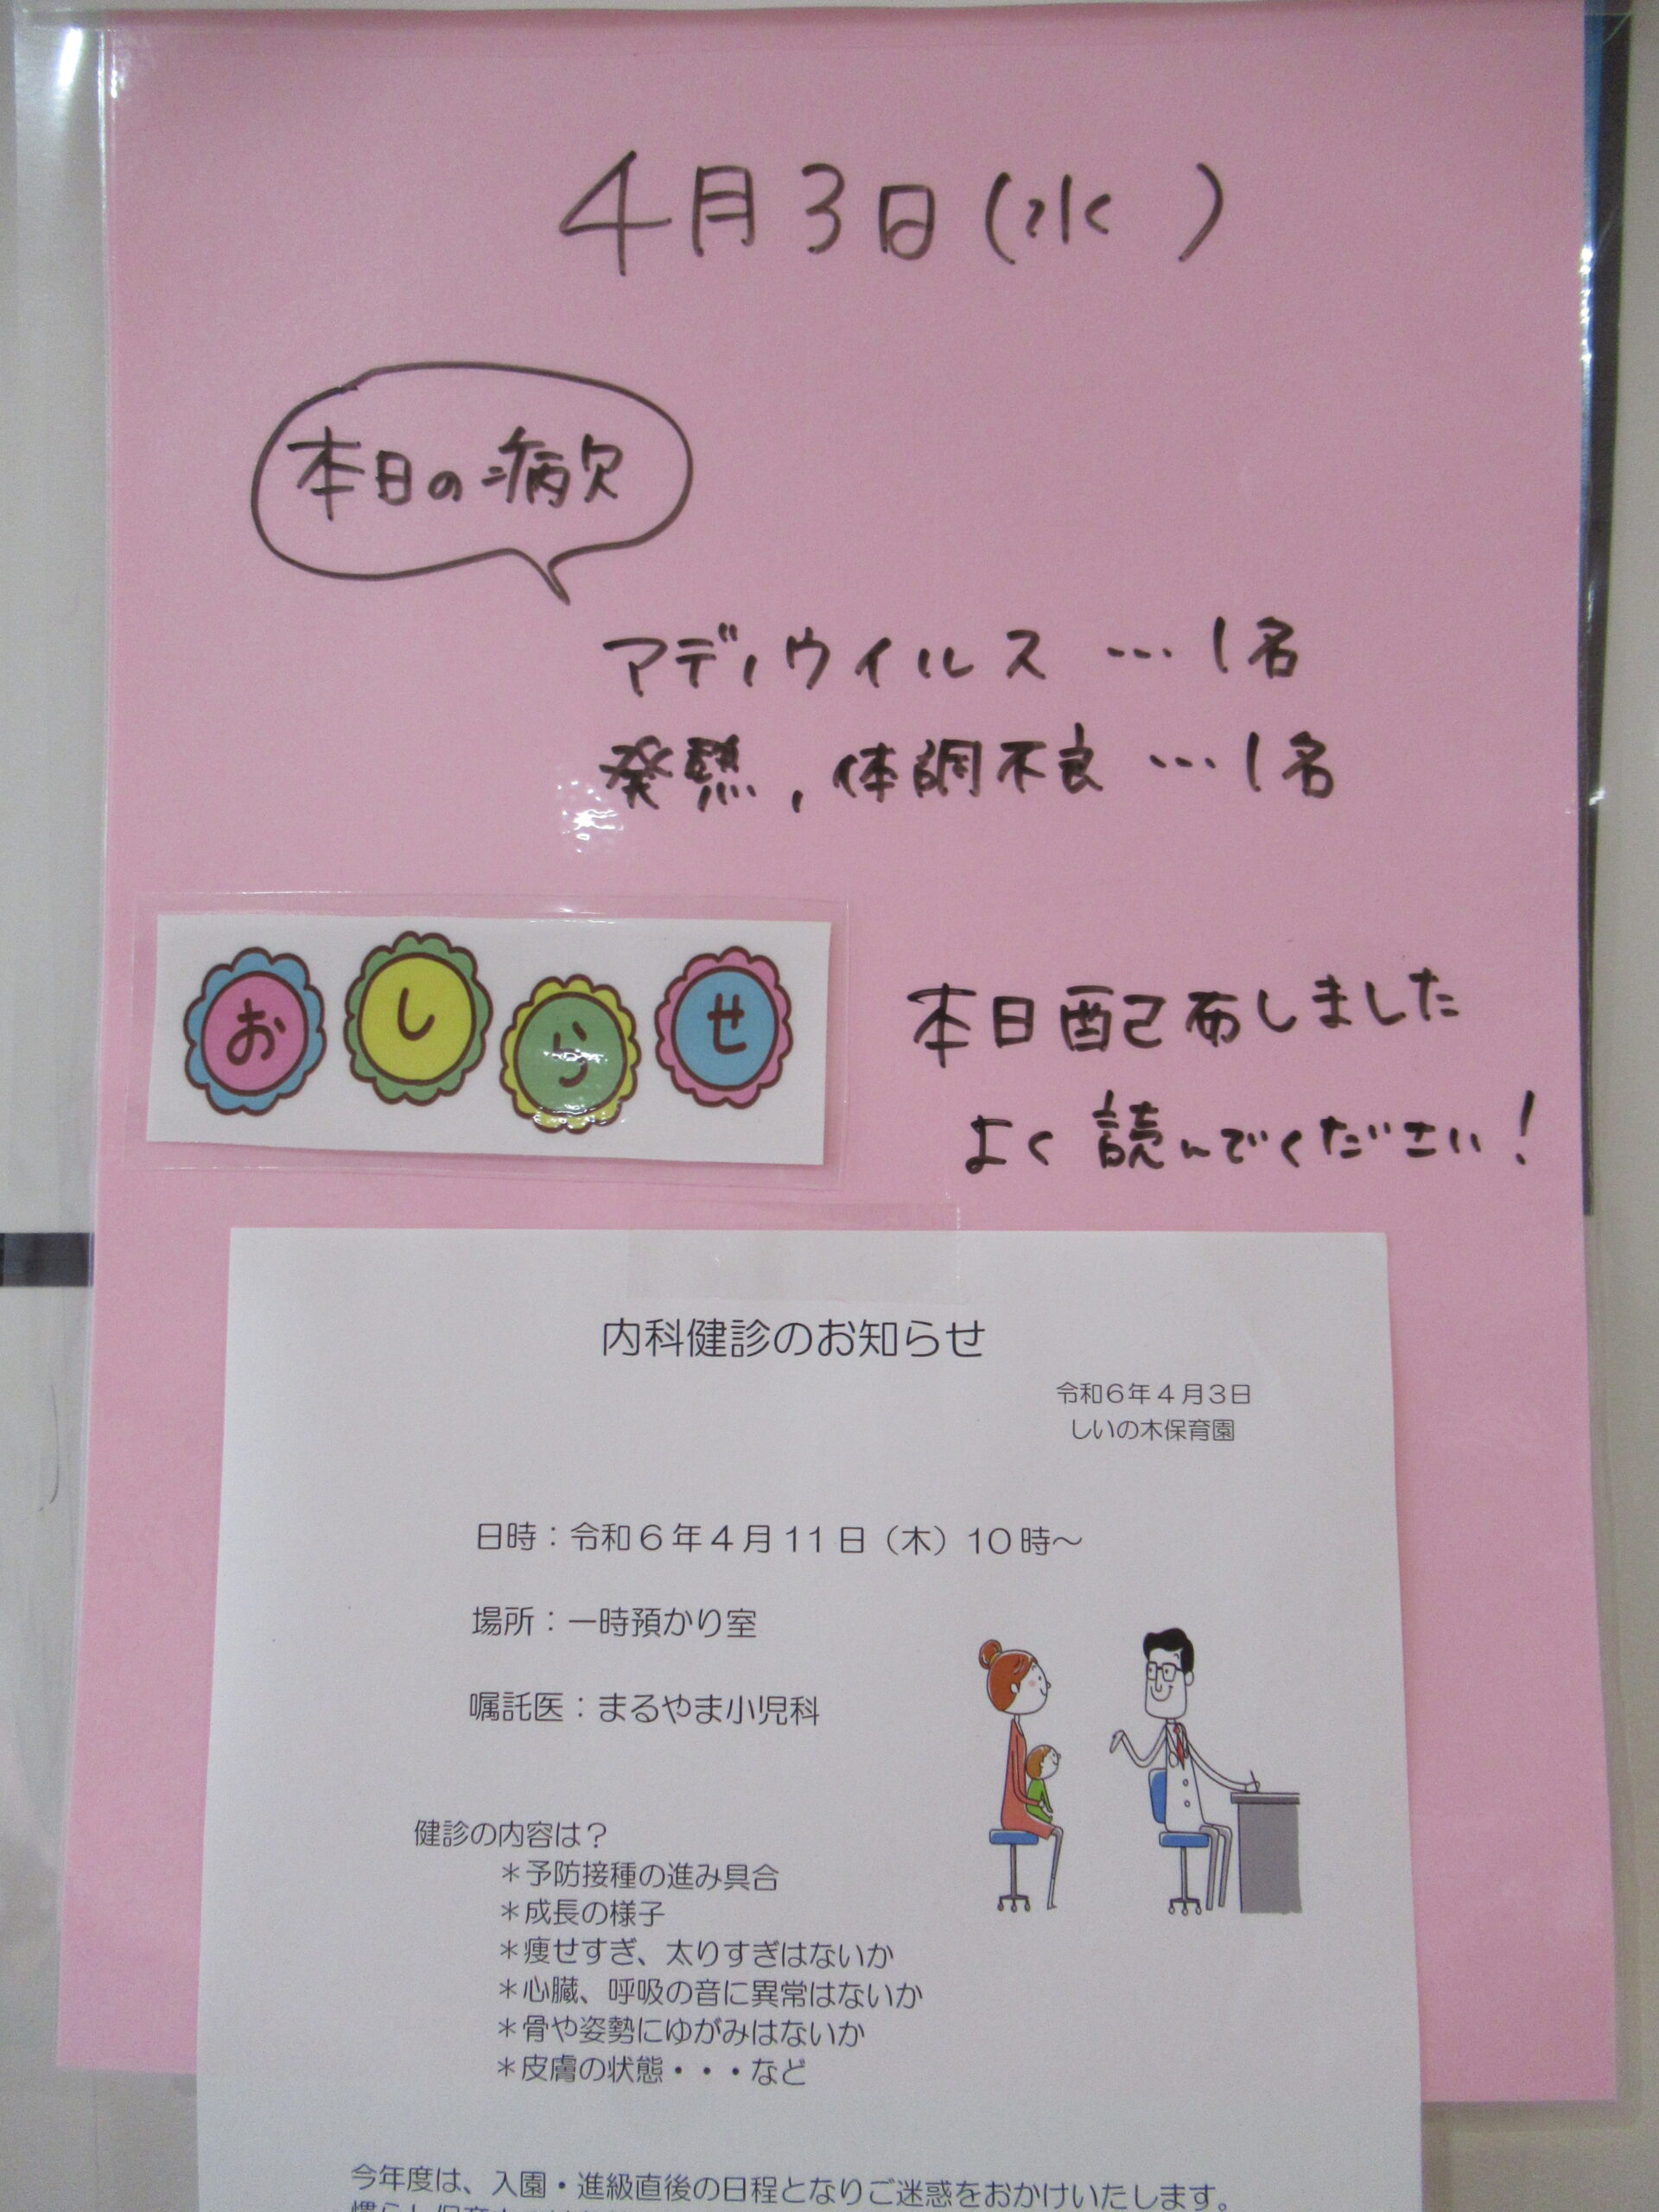 4月3日(水　)
本日の病欠
アデノウイルス…1名
発熱,体調不良…1名
おしらせ
本日配布しました
よく読んでください!
内科健診のお知らせ
令和6年4月3日
しいの木保育園
日時：令和6年4月11日（木）10時～
場所：一時預かり室
嘱託医：まるやま小児科
健診の内容は？
＊予防接種の進み具合
＊成長の様子
＊痩せすぎ、太りすぎはないか
＊心臓、呼吸の音に異常はないか
＊骨や姿勢にゆがみはないか
＊皮膚の状態・・・など
今年度は、入園・進級直後の日程となりご迷惑をおかけいたします。